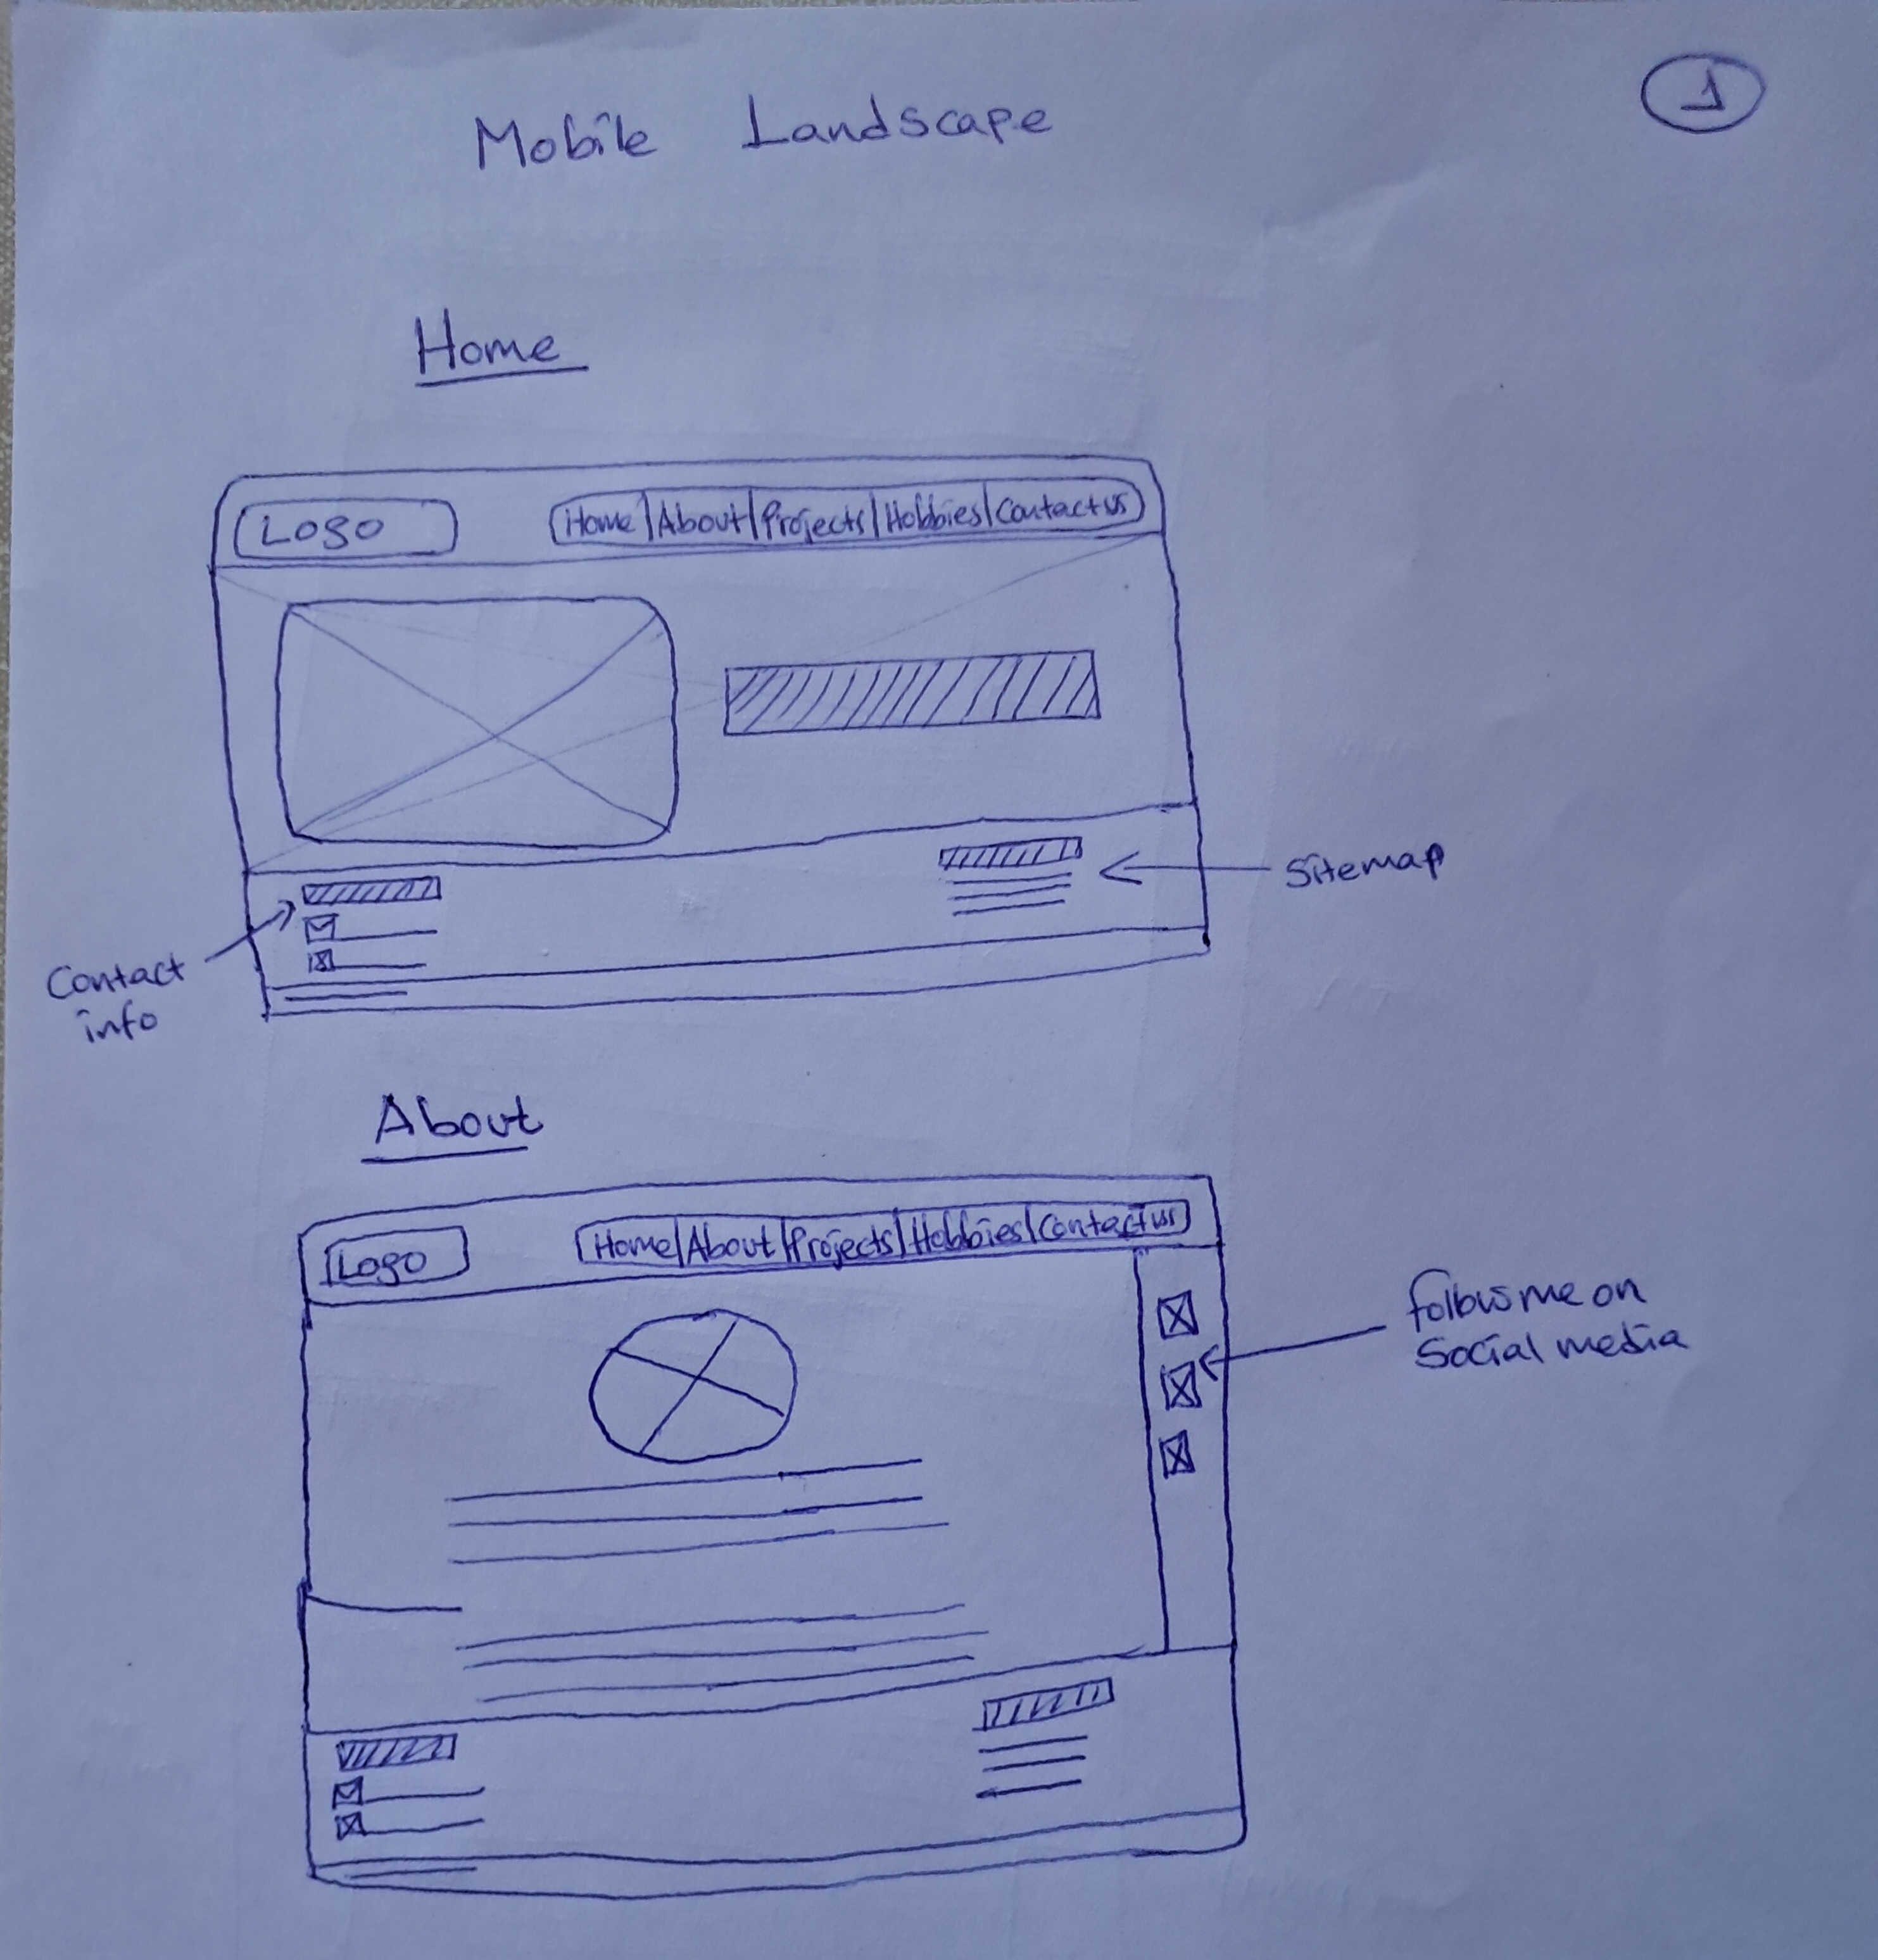 1
Mobile Landscape
Home
Logo
Home | About | Projects | Hobbies | Contact us
Sitemap
Contact
info
About
Logo
Home | About | Projects | Hobbies | Contact us
follow me on
Social media